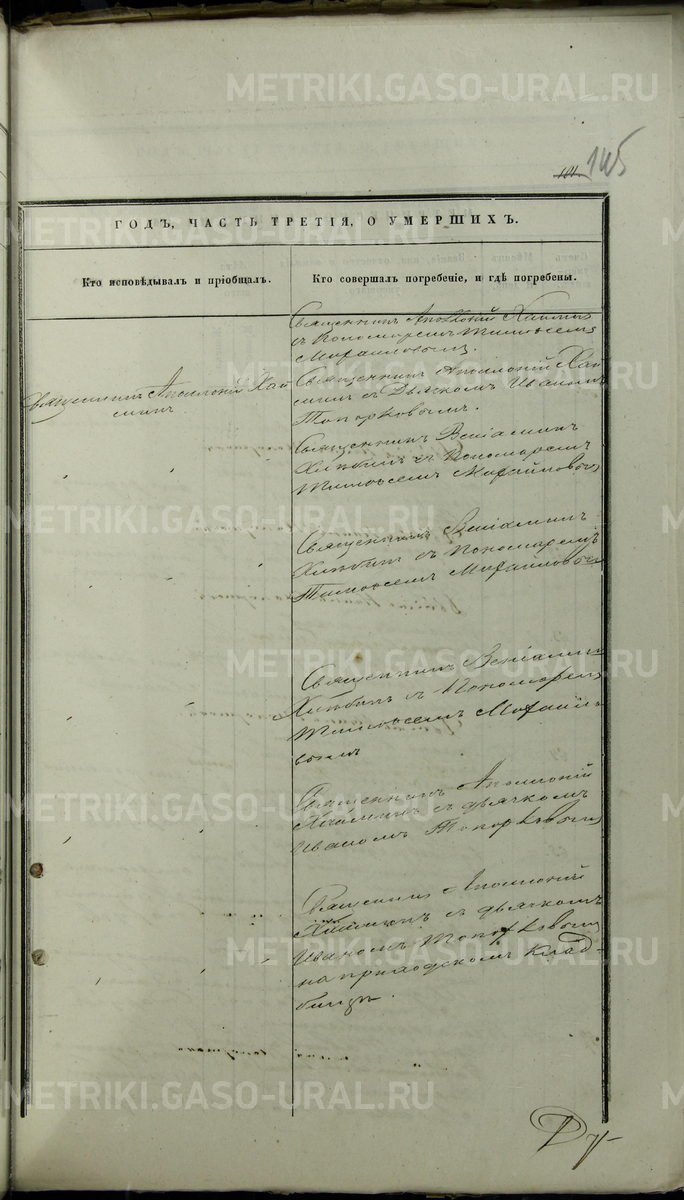 METRIKI.GASO-URAL.RU
145
ГОДЪ, ЧАСТЬ ТРЕТІЯ, О УМЕРШИХЪ.
Кто исповѣдывалъ и пріобщалъ.
Кто совершалъ погребеніе, и гдѣ погребены.
Священникъ Аполлоній
съ Пономаремъ Тимоѳеемъ
Михайловымъ.
Священникъ Аполлоній Хай
Священникъ Аполлоній Хай
съ Дьячкомъ Иваномъ
Топорковымъ.
Священникъ Веніаминъ
съ Пономаремъ
Тимоѳеемъ Михайловымъ
Священникъ Веніаминъ
съ Пономаремъ
Тимоѳеемъ Михайловымъ
Священникъ Веніаминъ
съ Пономаремъ
Тимоѳеемъ Михайло
вымъ
Священникъ Аполлоній
съ дьячкомъ
Иваномъ Топорковымъ
Священникъ Аполлоній
съ дьячкомъ
Иваномъ Топорковымъ
на приходскомъ клад-
бищѣ.